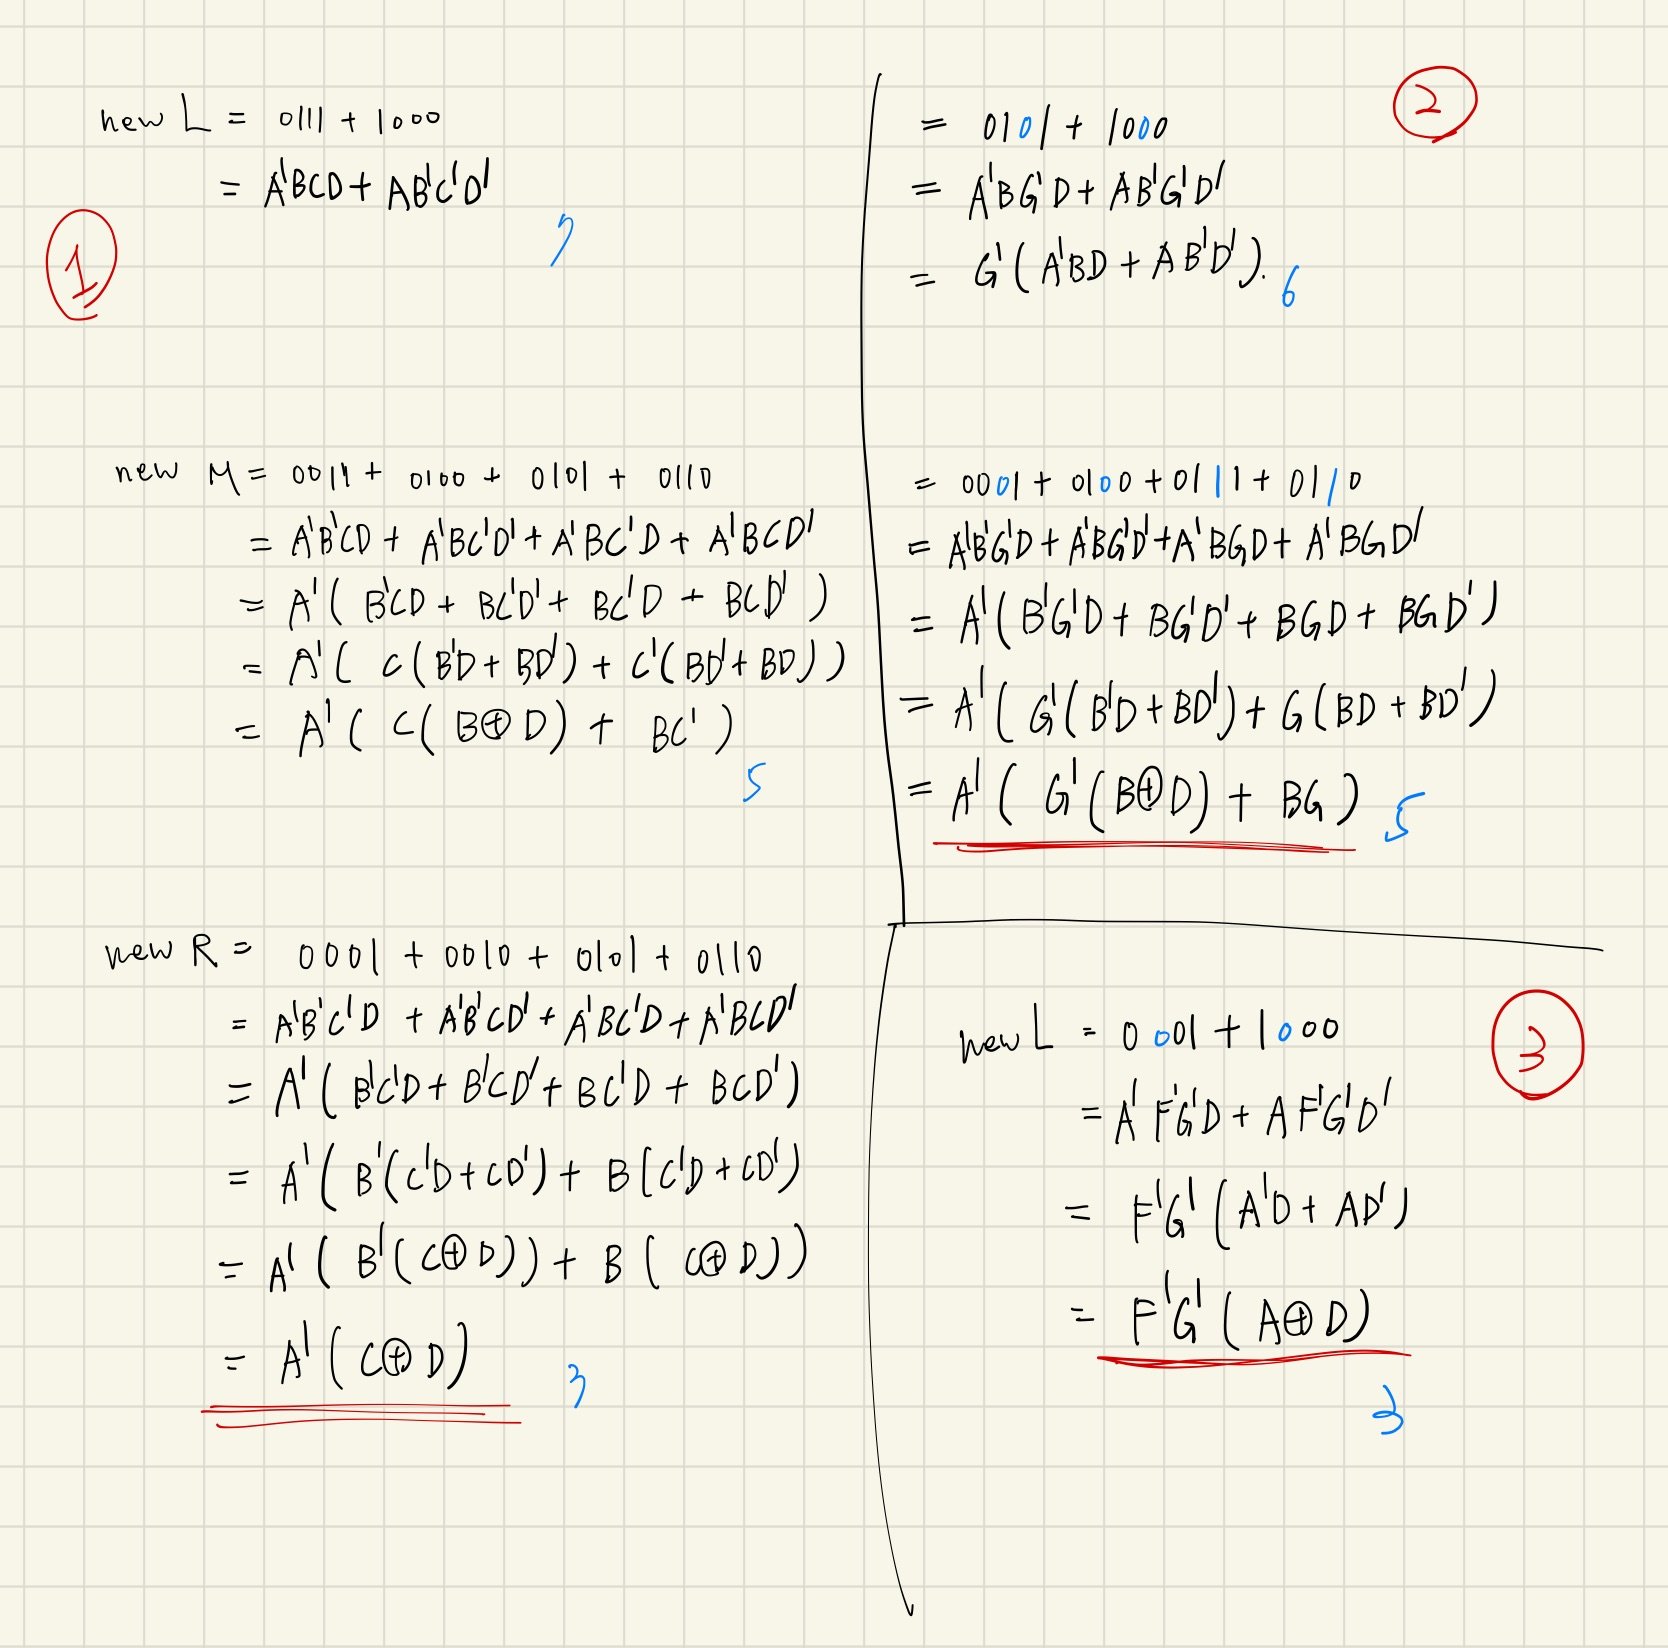 ①
new L = 0111 + 1000
= A'BCD + AB'C'D'
7
new M = 0011 + 0100 + 0101 + 0110
= A'B'CD + A'BC'D' + A'BC'D + A'BCD'
= A'( B'CD + BC'D' + BC'D + BCD' )
= A'( C(B'D + BD') + C'(BD' + BD))
= A'( C( B⊕D) + BC')
5
new R = 0001 + 0010 + 0101 + 0110
= A'B'C'D + A'B'CD' + A'BC'D + A'BCD'
= A'( B'C'D + B'CD' + BC'D + BCD')
= A'( B'(C'D + CD') + B(C'D + CD')
= A'( B'(C⊕D)) + B( C⊕D))
= A'(C⊕D)
3
②
= 0101 + 1000
= A'BG'D + AB'G'D'
= G'(A'BD + AB'D').
6
= 0001 + 0100 + 0111 + 0110
= A'B'G'D + A'BG'D' + A'BGD + A'BGD'
= A'(B'G'D + BG'D' + BGD + BGD')
= A'( G'(B'D + BD') + G(BD + BD')
= A'( G'(B⊕D) + BG)
5
③
new L = 0001 + 1000
= A'F'G'D + AF'G'D'
= F'G'(A'D + AD')
= F'G'( A⊕D)
3